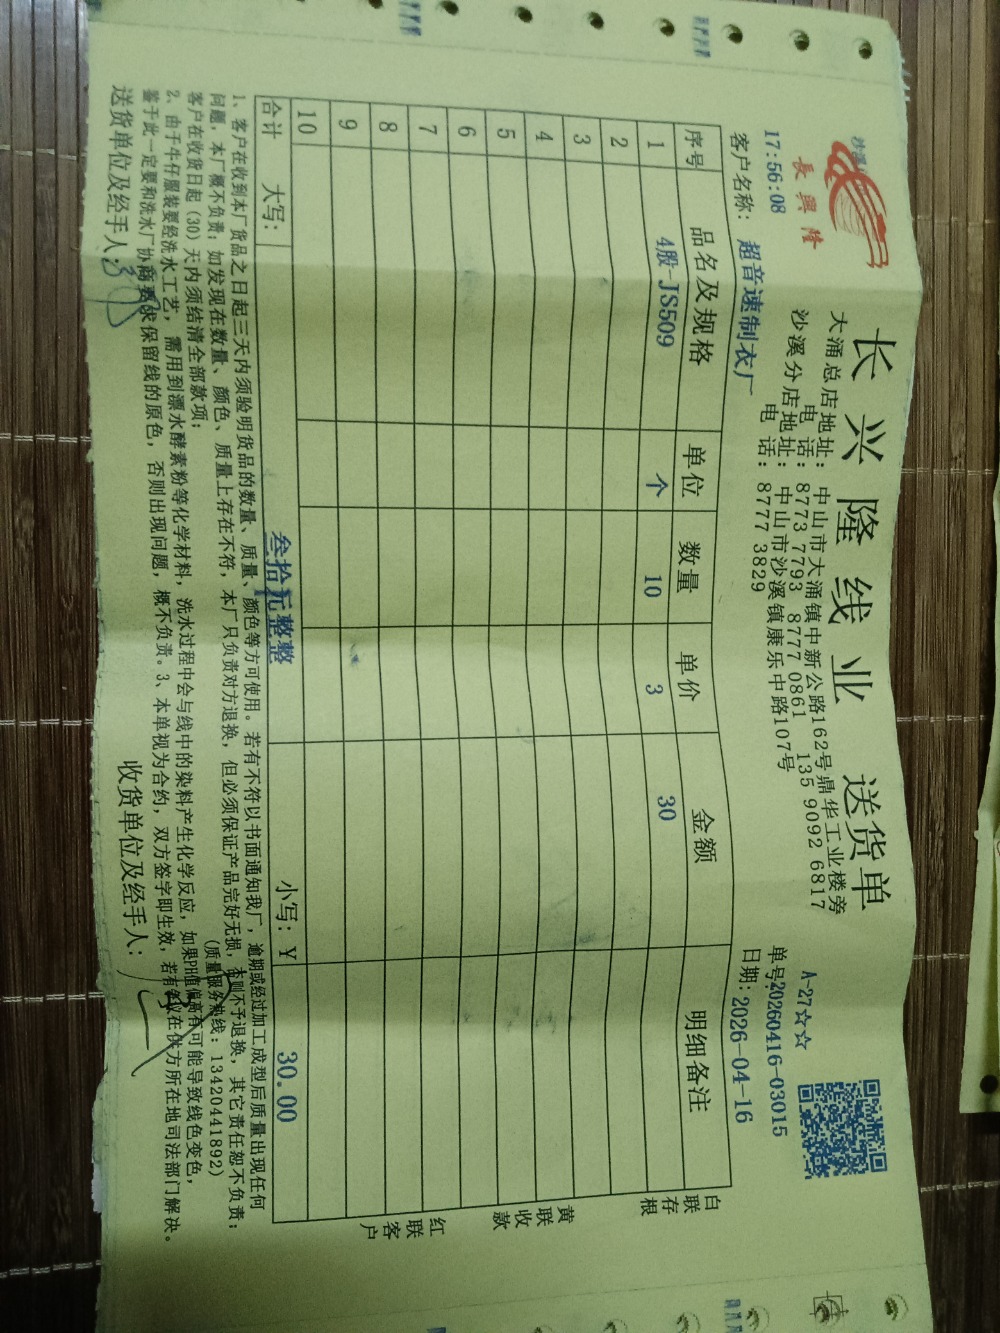 長興隆
长兴隆线业 送货单
大涌总店地址: 中山市大涌镇中新公路162号鼎华工业楼旁
电 话: 8773 7793 8777 0861 135 9092 6817
沙溪分店地址: 中山市沙溪镇康乐中路107号
电 话: 8777 3829
17:56:08
A-27☆☆
单号:20260416-03015
客户名称: 超音速制衣厂
日期: 2026-04-16
序号 品名及规格 单位 数量 单价 金额 明细备注
1 4股-JS509 个 10 3 30
2
3
4
5
6
7
8
9
10
合计 大写: 叁拾元整整 小写: ¥ 30.00
白联存根
黄联收款
红联客户
1、客户在收到本厂货品之日起三天内须验明货品的数量、质量、颜色等方可使用。若有不符以书面通知我厂，逾期或经过加工成型后质量出现任何
问题，本厂概不负责；如发现在数量、颜色、质量上存在不符，本厂只负责对方退换，但必须保证产品完好无损，否则不予退换，其它责任恕不负责；
客户在收货日起（30）天内须结清全部款项； (质量服务热线: 13420441892)
2、由于牛仔服装要经洗水工艺，需用到漂水酵素粉等化学材料，洗水过程中会与线中的染料产生化学反应，如果PH值偏高有可能导致线色变色，
鉴于此一定要和洗水厂协商要求保留线的原色，否则出现问题，概不负责。3、本单视为合约，双方签字即生效，若有争议在供方所在地司法部门解决。
送货单位及经手人:
收货单位及经手人: